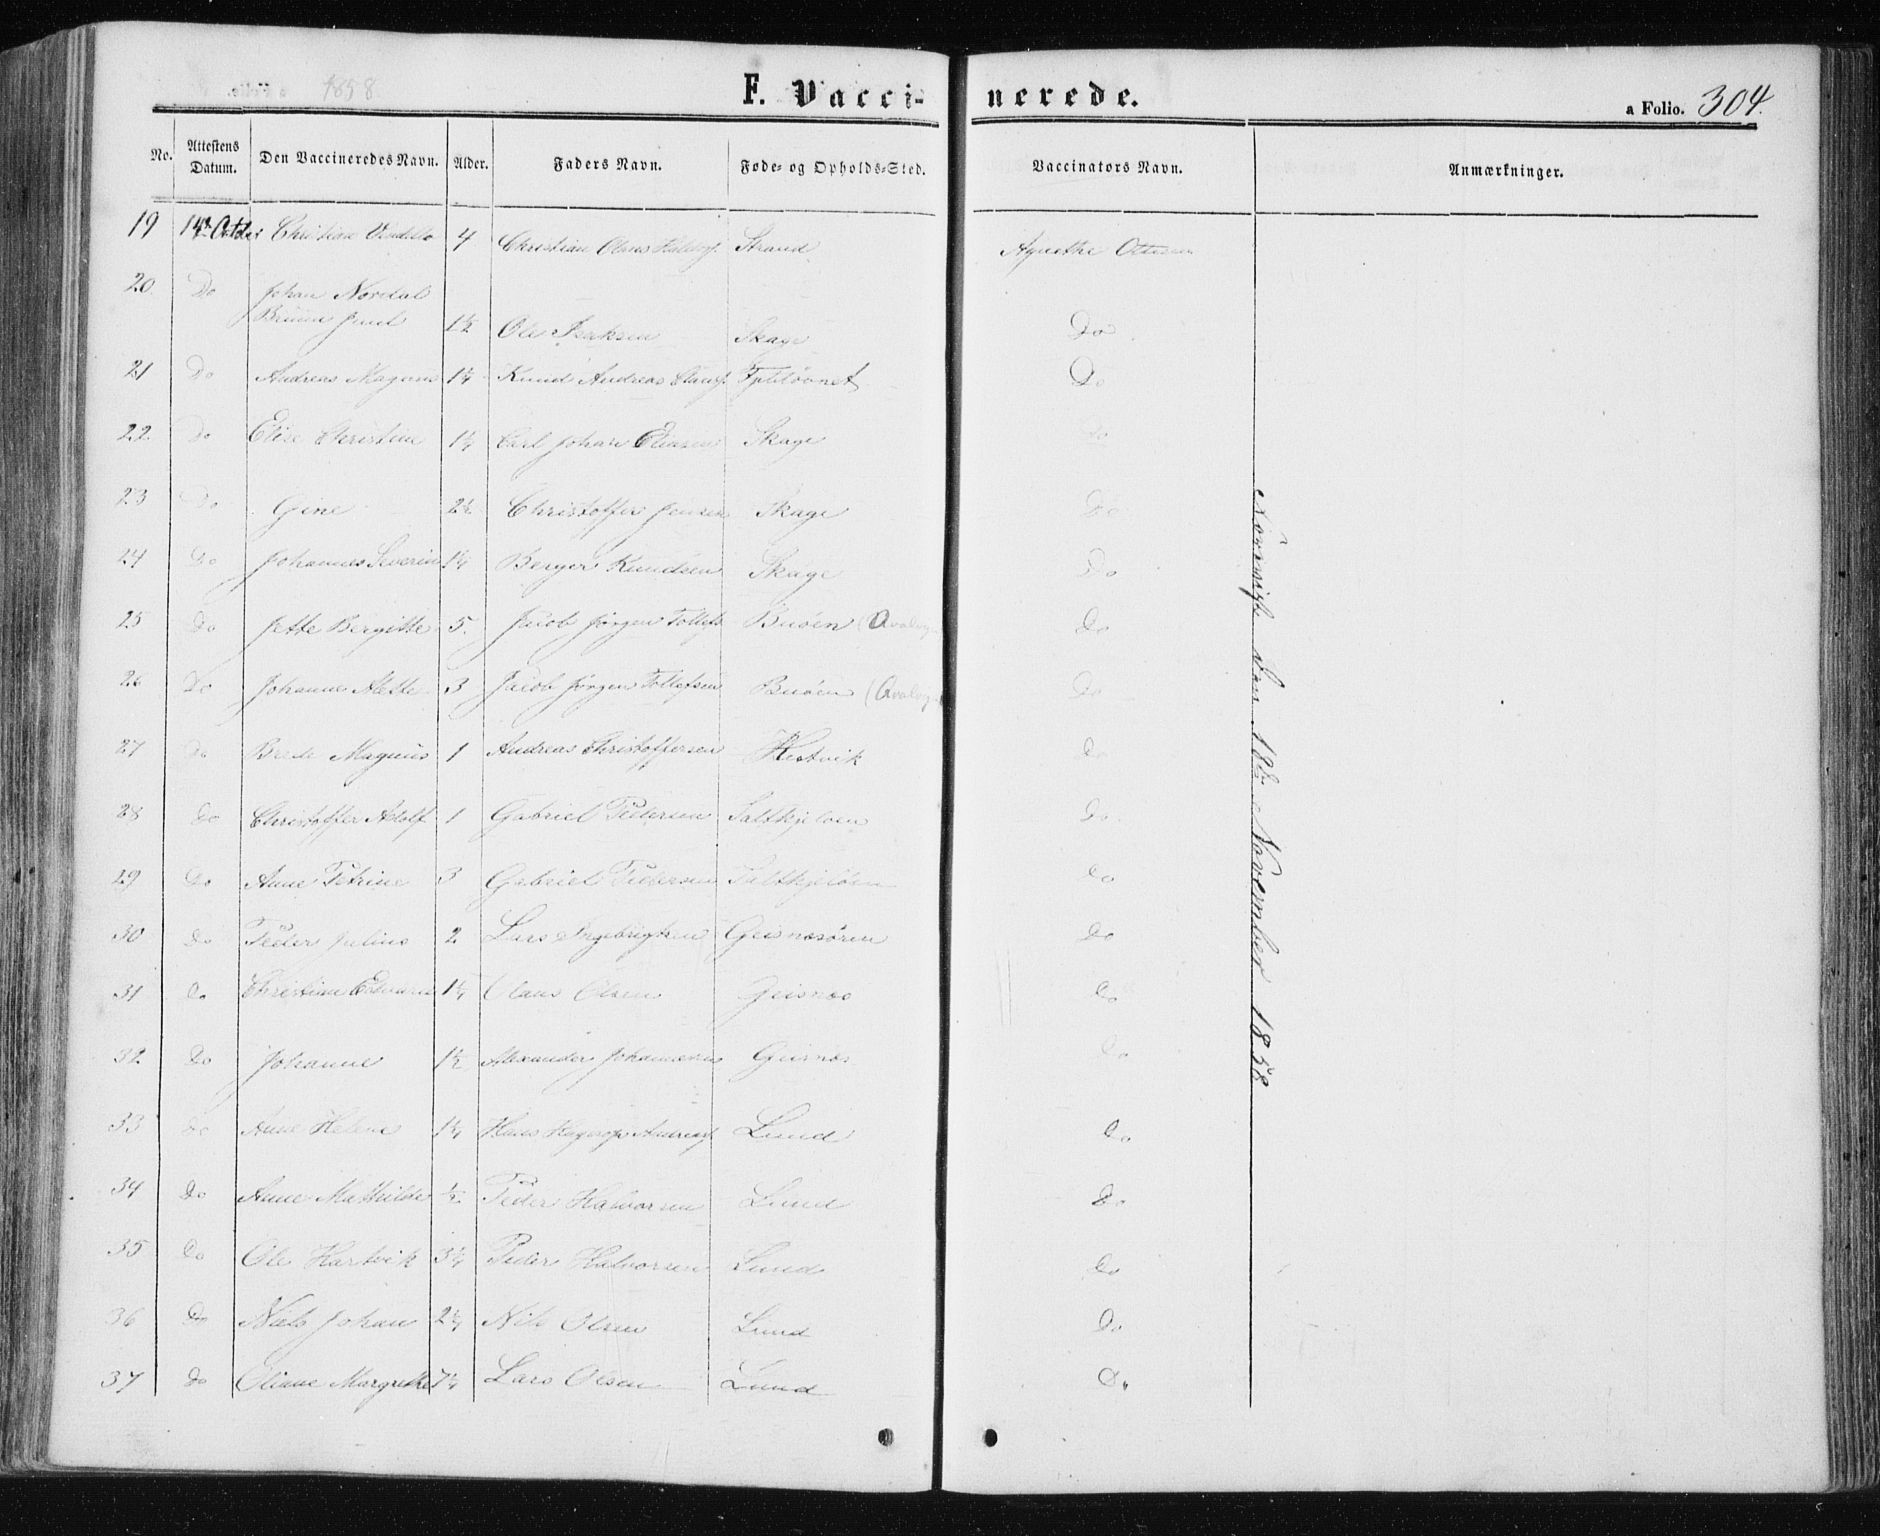 1858.
F. Vacci-
nerede.
a Folio. 304.
No. Attestens Datum. Den Vaccineredes Navn. Alder. Faders Navn. Føde- og Opholds-Sted. Vaccinators Navn. Anmærkninger.
19 14de Christian 4 Christian Olaus Strand Agnethe Ottesen
20. Do Johan Nordal
Bruun Juul 1½ Ole Isaksen Skage Do
21 Do Andreas Magnus 1¼ Knud Andreas Do
22. Do Elise Christine 1¼ Carl Johan Skage Do
23 Do Gine 2½ Christoffer Jensen Skage Do
24 Do Johannes Severin 1¼ Berger Knudsen Skage Do
25 Do Jette Bergitte 5. Jacob Jørgen Tollefs Buöen Do
26 Do Johanne Alette 3 Jacob Jørgen Tollefsen Buöen Do
27 Do Brede Magnus 1 Andreas Christoffersen Hestvik Do
28 Do Christoffer Adolf 1 Gabriel Pedersen Do
29 Do Anne Petrine 3 Gabriel Pedersen Do
30 Do Peder Julius 2 Lars Ingebrigtsen Do
31 Do Christian Edvard 1¼ Olaus Olsen Geisnæs Do
32 Do Johanne 1½ Alexander Johannesen Geisnæs Do
33 Do Anne Helene 1¼ Hans Lund Do
34 Do Anne Mathilde ½ Peder Halvorsen Lund Do
35 Do Ole Hartvik 3¼ Peder Halvorsen Lund Do
36 Do Niels Johan 2¼ Nils Olsen Lund Do
37 Do Oliane Margrethe 7¼ Lars Olsen Lund Do
den 19de November 1858